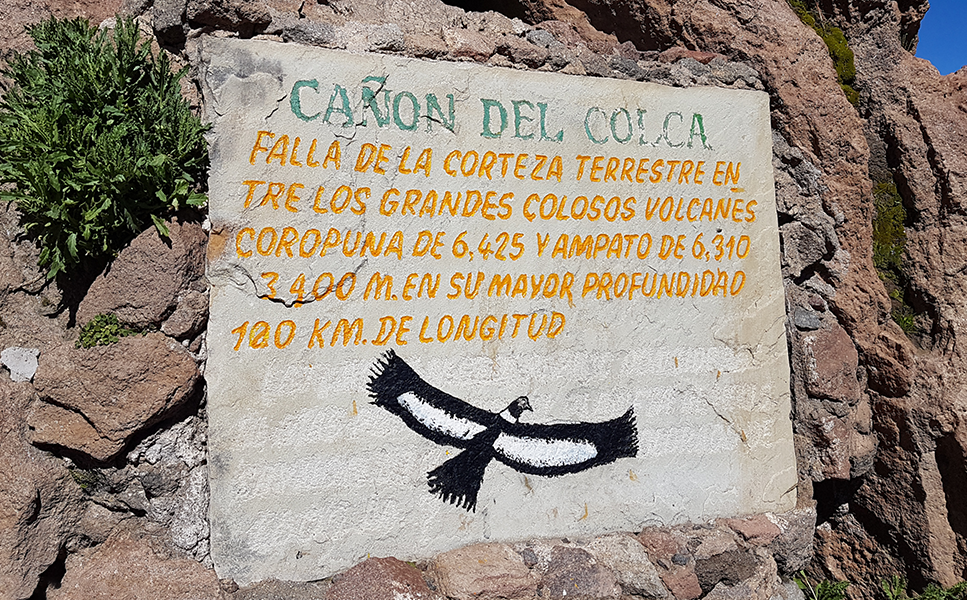 CAÑON DEL COLCA
FALLA DE LA CORTEZA TERRESTRE EN_
TRE LOS GRANDES COLOSOS VOLCANES
COROPUNA DE 6,425 Y AMPATO DE 6,310
3,400 M. EN SU MAYOR PROFUNDIDAD
100 KM. DE LONGITUD